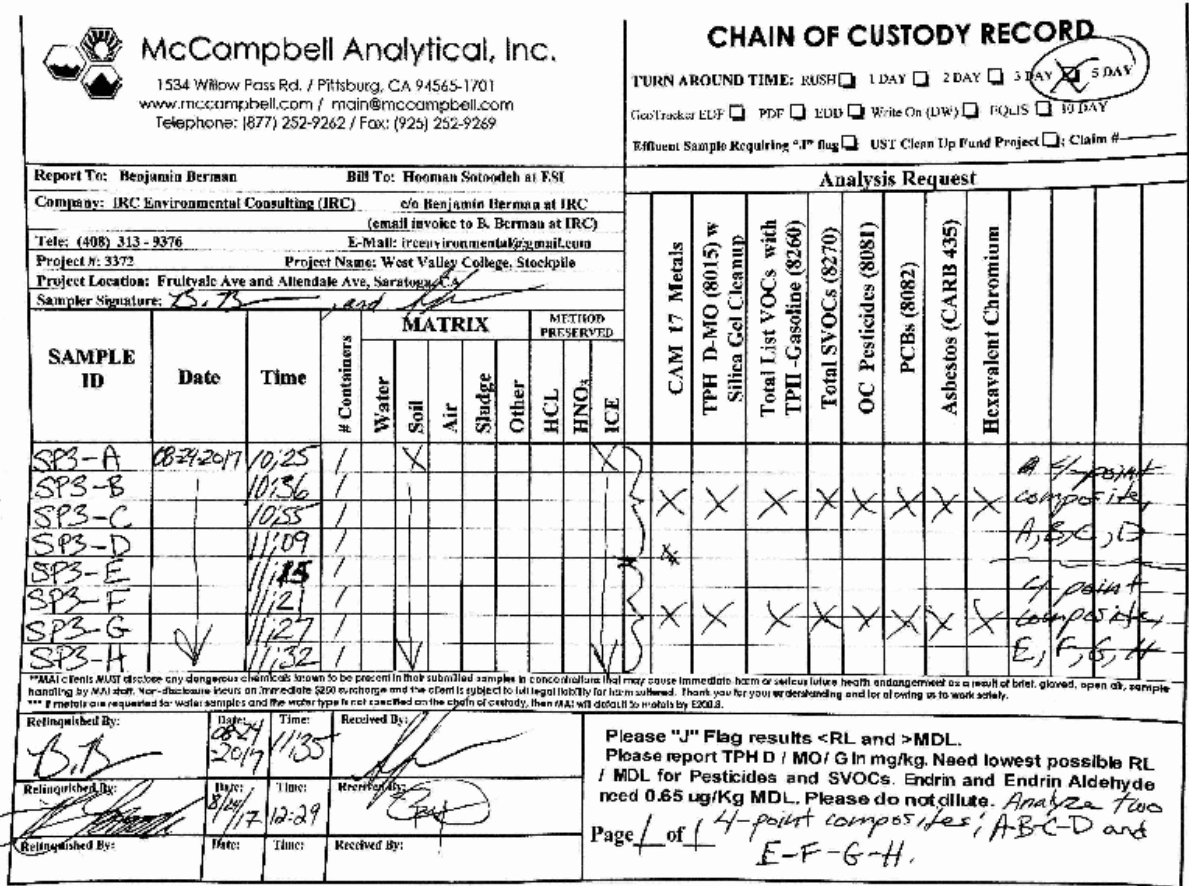 McCampbell Analytical, Inc.
1534 Willow Pass Rd. / Pittsburg, CA 94565-1701
www.mccampbell.com / main@mccampbell.com
Telephone: (877) 252-9262 / Fax: (925) 252-9269
CHAIN OF CUSTODY RECORD
TURN AROUND TIME: RUSH 1 DAY 2 DAY 3 DAY X 5 DAY
GeoTracker EDF PDF EDD Write On (DW) EQuIS 10 DAY
Effluent Sample Requiring "J" flag UST Clean Up Fund Project ; Claim #
Report To: Benjamin Berman Bill To: Hooman Sotoodeh at ESI
Company: IRC Environmental Consulting (IRC) c/o Benjamin Berman at IRC
(email invoice to B. Berman at IRC)
Tele: (408) 313 - 9376 E-Mail: ircenvironmental@gmail.com
Project #: 3372 Project Name: West Valley College, Stockpile
Project Location: Fruitvale Ave and Allendale Ave, Saratoga, CA
Sampler Signature: B.B and
Analysis Request
SAMPLE ID
Date
Time
# Containers
MATRIX
Water
Soil
Air
Sludge
Other
METHOD PRESERVED
HCL
HNO3
ICE
CAM 17 Metals
TPH D-MO (8015) w Silica Gel Cleanup
Total List VOCs with TPH -Gasoline (8260)
Total SVOCs (8270)
OC Pesticides (8081)
PCBs (8082)
Asbestos (CARB 435)
Hexavalent Chromium
SP3-A 08-24-2017 10:25 1 X X
SP3-B 10:36 1
SP3-C 10:55 1
X X X X X X X X
4-point
composite,
A, B, C, D
SP3-D 11:09 1
SP3-E 11:15 1
SP3-F 11:21 1
SP3-G 11:27 1
X X X X X X X X
4-point
composite,
E, F, G, H
SP3-H 11:32 1
**MAI clients MUST disclose any dangerous chemicals known to be present in their submitted samples in concentrations that may cause immediate harm or serious future health endangerment as a result of brief, gloved, open air, sample
handling by MAI staff. Non-disclosure incurs an immediate $250 surcharge and the client is subject to full legal liability for harm suffered. Thank you for your understanding and for allowing us to work safely.
*** If metals are requested for water samples and the water type is not specified on the chain of custody, then MAI will default to metals by E200.8.
Relinquished By: Date: Time: Received By:
B.B 08-24 2017 11:35
Relinquished By: Date: Time: Received By:
8/24/17 12:29
Relinquished By: Date: Time: Received By:
Please "J" Flag results <RL and >MDL.
Please report TPH D / MO/ G in mg/kg. Need lowest possible RL
/ MDL for Pesticides and SVOCs. Endrin and Endrin Aldehyde
need 0.65 ug/Kg MDL. Please do not dilute. Analyze two
4-point composites; A-B-C-D and
E-F-G-H.
Page 1 of 1